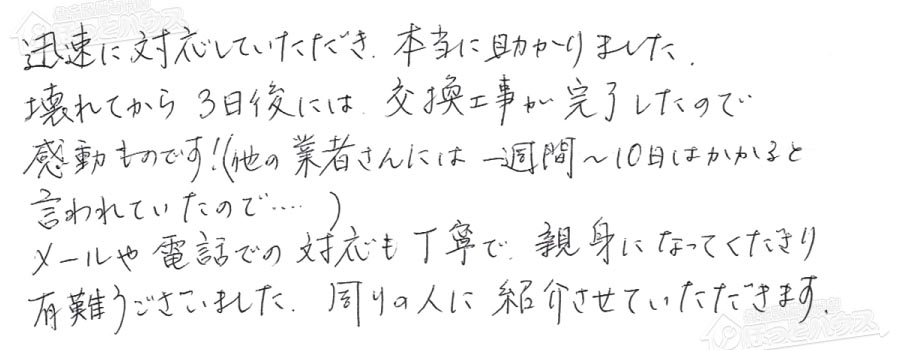 迅速に対応していただき、本当に助かりました。
壊れてから3日後には、交換工事が完了したので
感動ものです!(他の業者さんには一週間~10日はかかると
言われていたので‥‥)
メールや電話での対応も丁寧で、親身になってくださり
有難うございました。周りの人に紹介させていただきます。
ほっとハウス
ほっとハウス